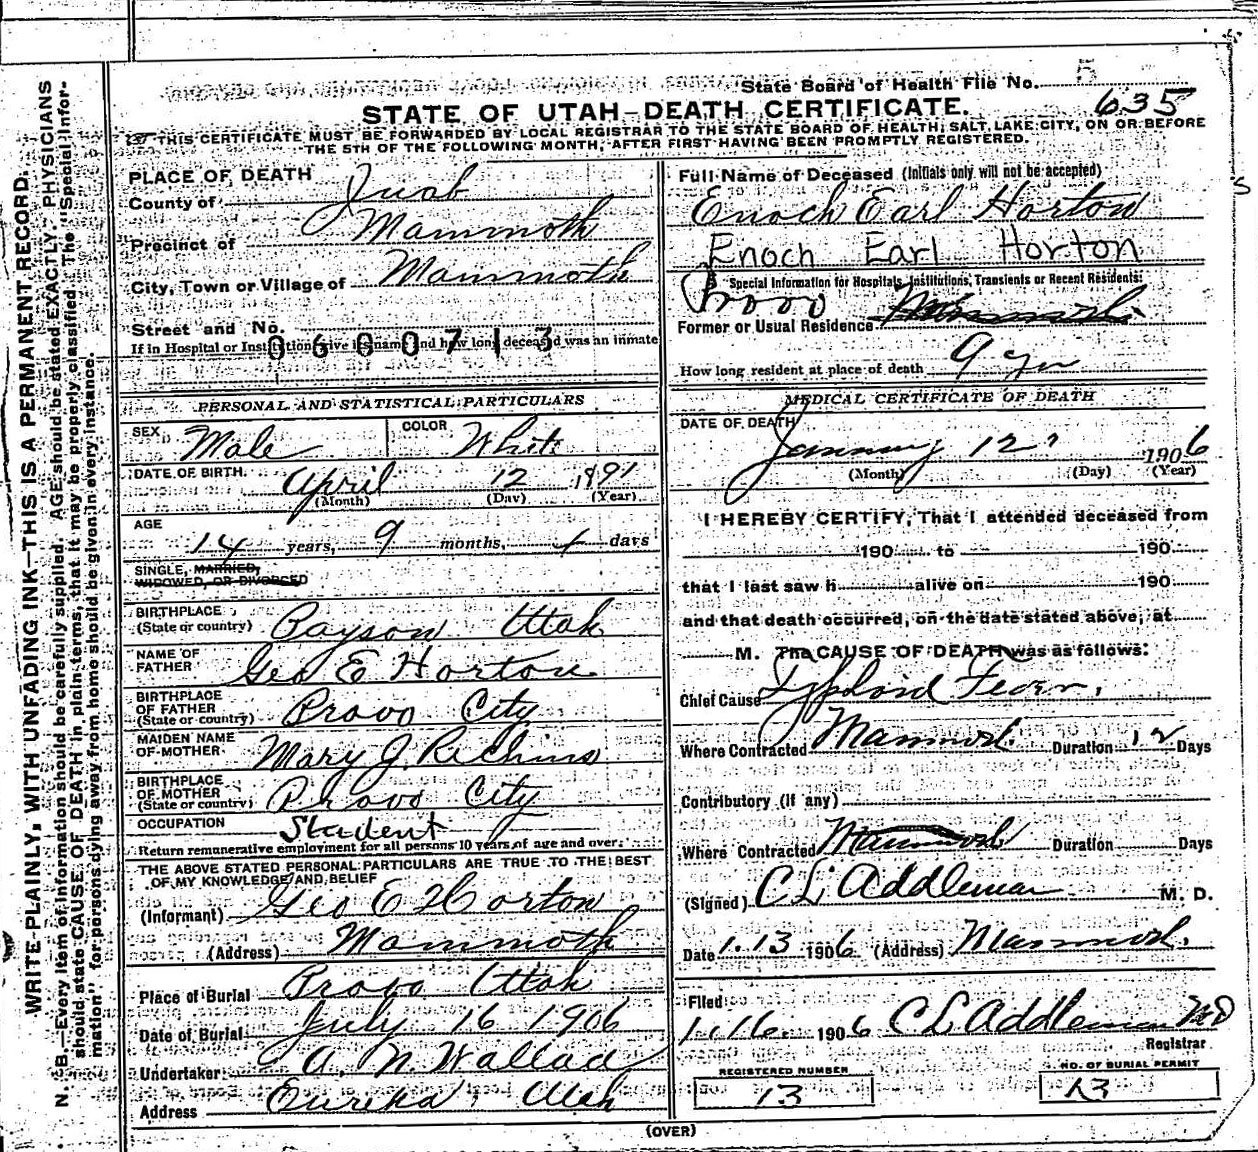 State Board of Health File No. 5
635
STATE OF UTAH—DEATH CERTIFICATE.
THIS CERTIFICATE MUST BE FORWARDED BY LOCAL REGISTRAR TO THE STATE BOARD OF HEALTH, SALT LAKE CITY, ON OR BEFORE
THE 5TH OF THE FOLLOWING MONTH, AFTER FIRST HAVING BEEN PROMPTLY REGISTERED.
WRITE PLAINLY, WITH UNFADING INK—THIS IS A PERMANENT RECORD.
N. B.—Every item of information should be carefully supplied. AGE should be stated EXACTLY. PHYSICIANS
should state CAUSE OF DEATH in plain terms, that it may be properly classified. The "Special Infor-
mation" for persons dying away from home should be given in every instance.
PLACE OF DEATH
County of Juab
Precinct of Mammoth
City, Town or Village of Mammoth
Street and No.
If in Hospital or Institution give its name and how long deceased was an inmate
0600713
PERSONAL AND STATISTICAL PARTICULARS
SEX Male COLOR White
DATE OF BIRTH April 12 1891
(Month) (Day) (Year)
AGE
14 years, 9 months, days
SINGLE, MARRIED,
WIDOWED, OR DIVORCED
BIRTHPLACE
(State or country) Payson Utah
NAME OF
FATHER Geo E Horton
BIRTHPLACE
OF FATHER
(State or country) Provo City
MAIDEN NAME
OF MOTHER Mary J
BIRTHPLACE
OF MOTHER
(State or country) Provo City
OCCUPATION Student
Return remunerative employment for all persons 10 years of age and over.
THE ABOVE STATED PERSONAL PARTICULARS ARE TRUE TO THE BEST
OF MY KNOWLEDGE AND BELIEF
(Informant) Geo E Horton
(Address) Mammoth
Place of Burial Provo Utah
Date of Burial July 16 1906
Undertaker A. N. Wallace
Address Eureka Utah
Full Name of Deceased (Initials only will not be accepted)
Enoch Earl Horton
Enoch Earl Horton
Special Information for Hospitals, Institutions, Transients or Recent Residents:
Provo
Former or Usual Residence Mammoth
How long resident at place of death 9 yr
MEDICAL CERTIFICATE OF DEATH
DATE OF DEATH
January 12 1906
(Month) (Day) (Year)
I HEREBY CERTIFY, That I attended deceased from
190 to 190
that I last saw h alive on 190
and that death occurred, on the date stated above, at
M. The CAUSE OF DEATH was as follows:
Chief Cause Typhoid Fever.
Where Contracted Mammoth Duration 12 Days
Contributory (If any)
Where Contracted Mammoth Duration Days
(Signed) C L Addleman M. D.
Date 1.13 1906 (Address) Mammoth.
Filed
1.16. 1906 C L Addleman MD
Registrar
REGISTERED NUMBER NO. OF BURIAL PERMIT
13 13
(OVER)